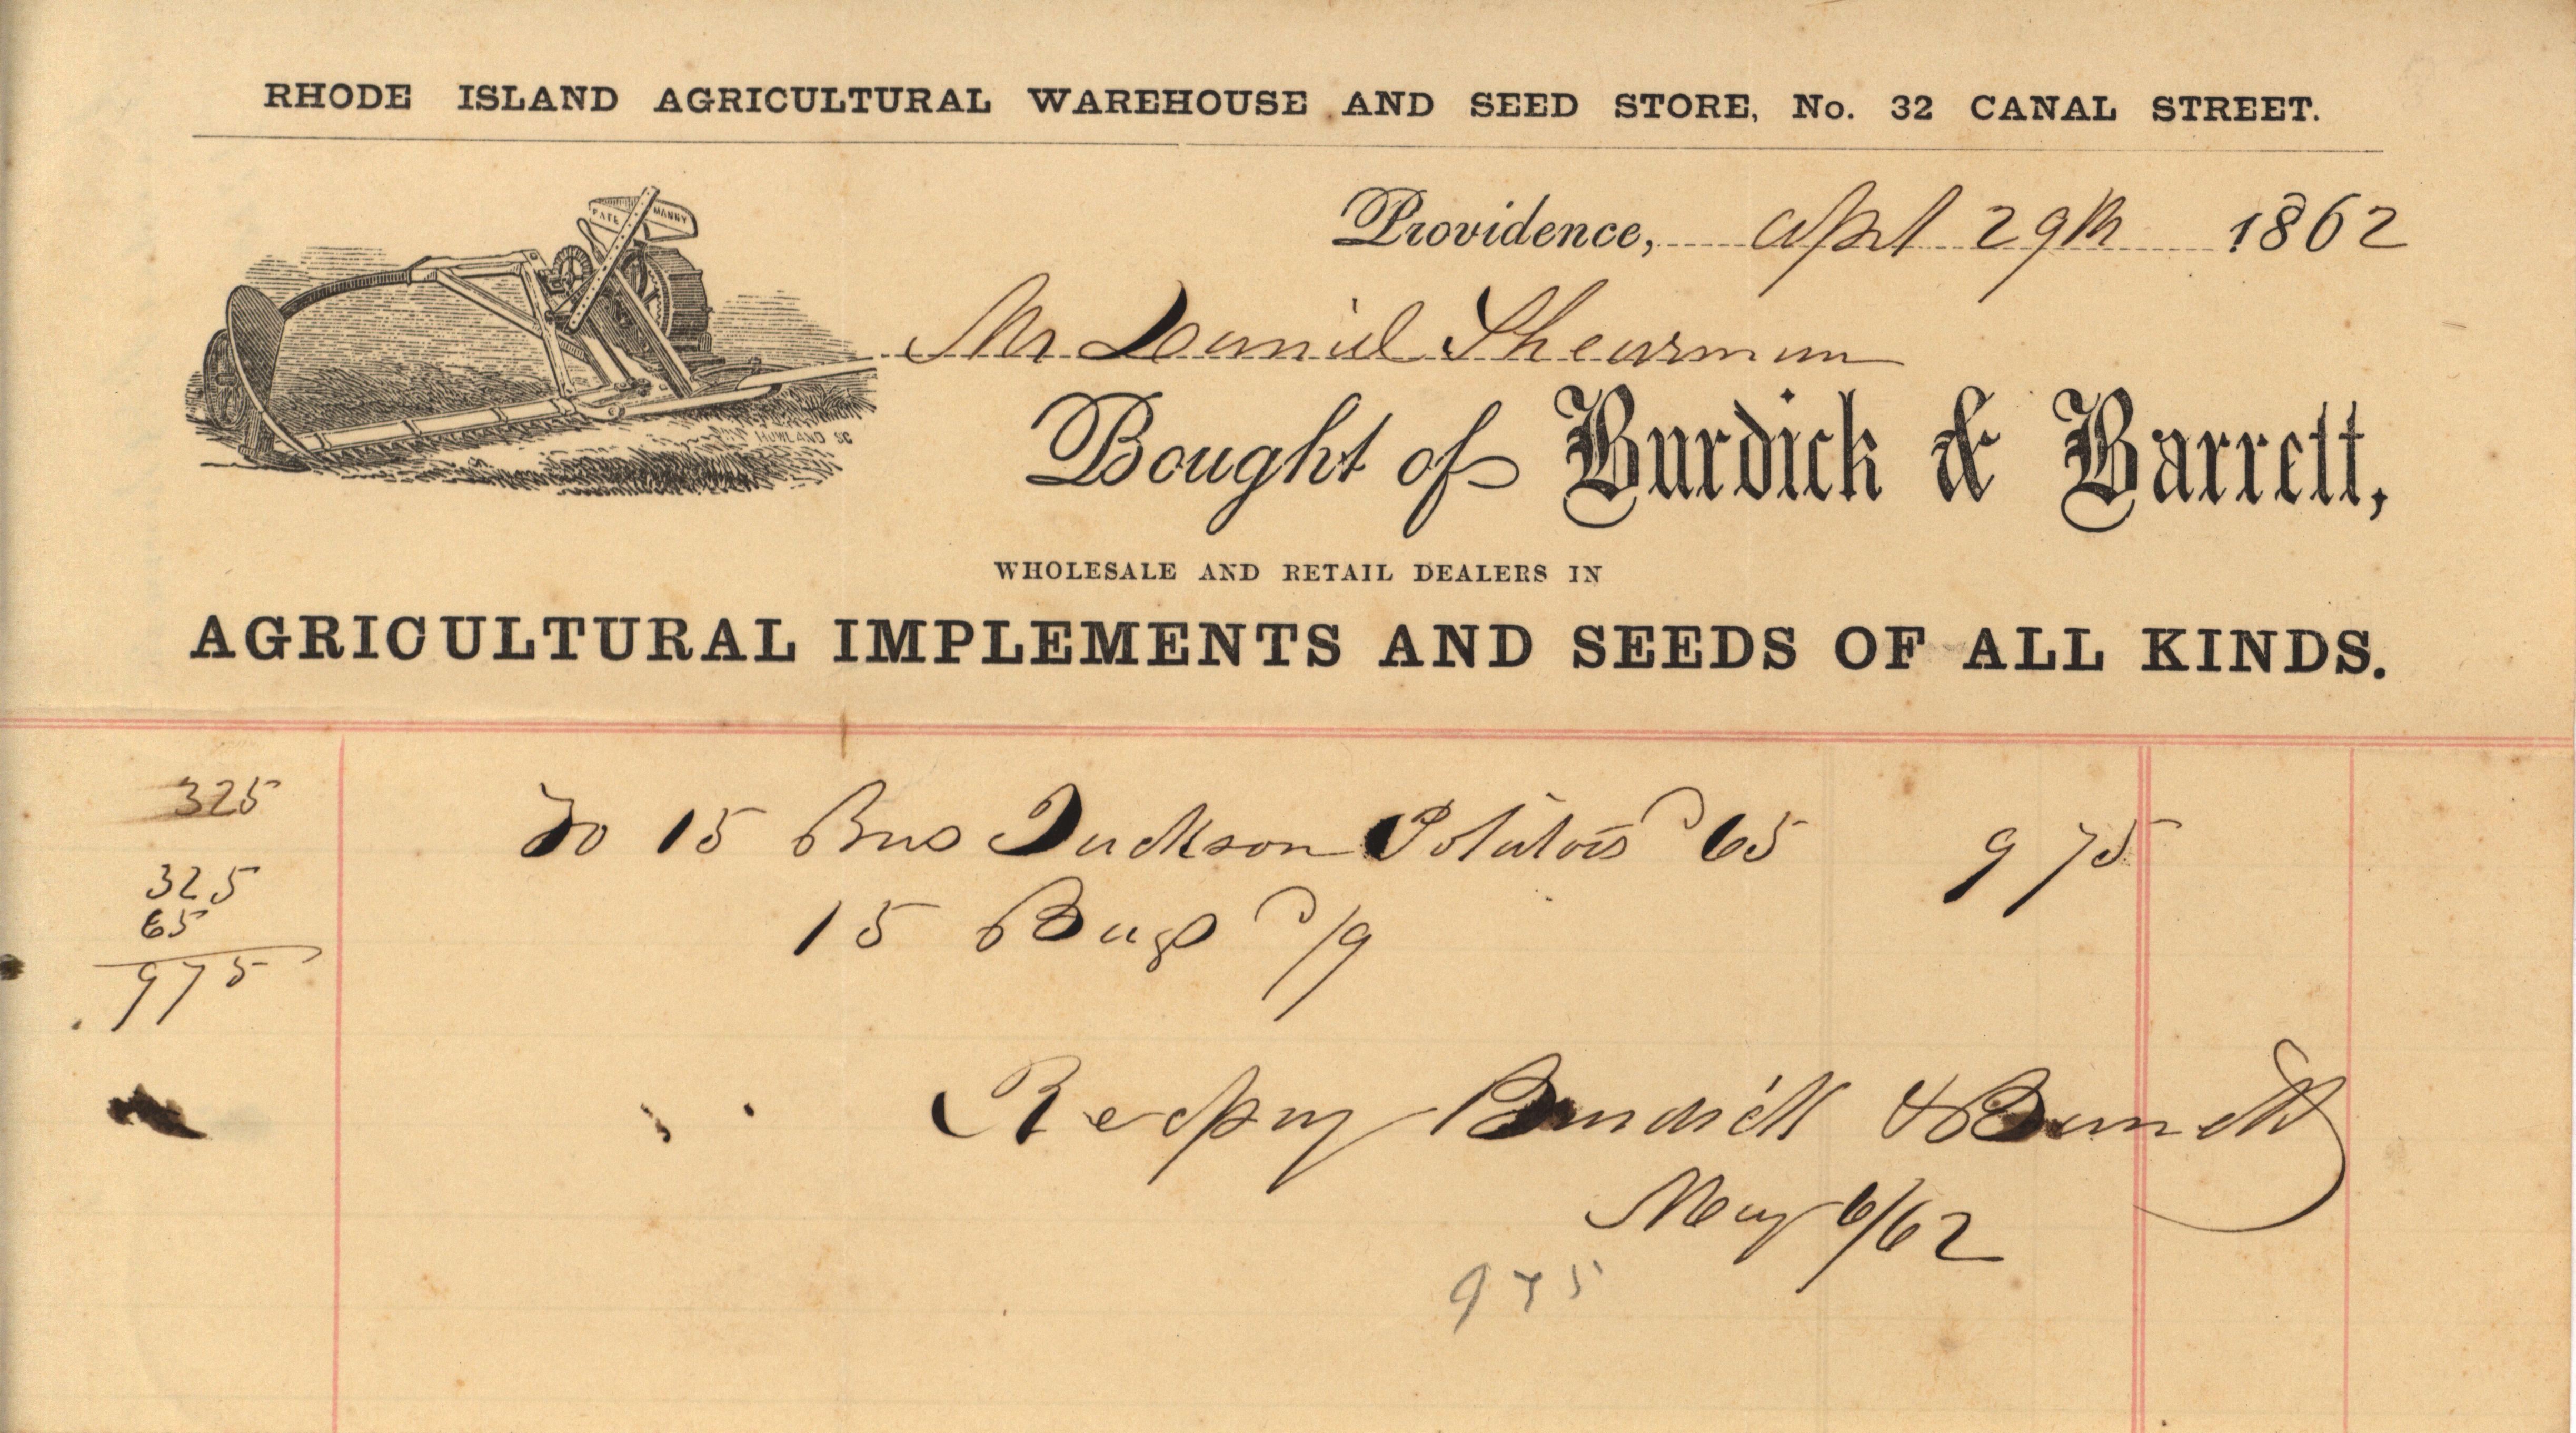 RHODE ISLAND AGRICULTURAL WAREHOUSE AND SEED STORE, No. 32 CANAL STREET.
PATE MANNY
Providence, Apl 29th 1862
Mr Daniel Shearman
HOWLAND SC
Bought of Burdick & Barrett,
WHOLESALE AND RETAIL DEALERS IN
AGRICULTURAL IMPLEMENTS AND SEEDS OF ALL KINDS.
325
To 15 Bus Jackson Potatoes 65 9 75
325
65
15 Bags /9
975
Burdick & Barrett
May 6/62
975